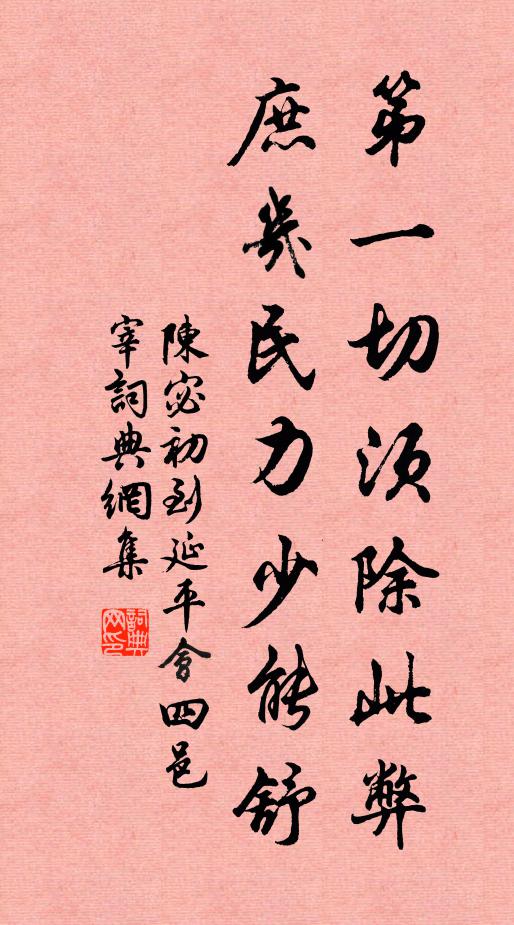 第一切須除此弊
庶幾民力少能舒
陳宓初到延平會四邑
宰詞典網集
詞典
网印